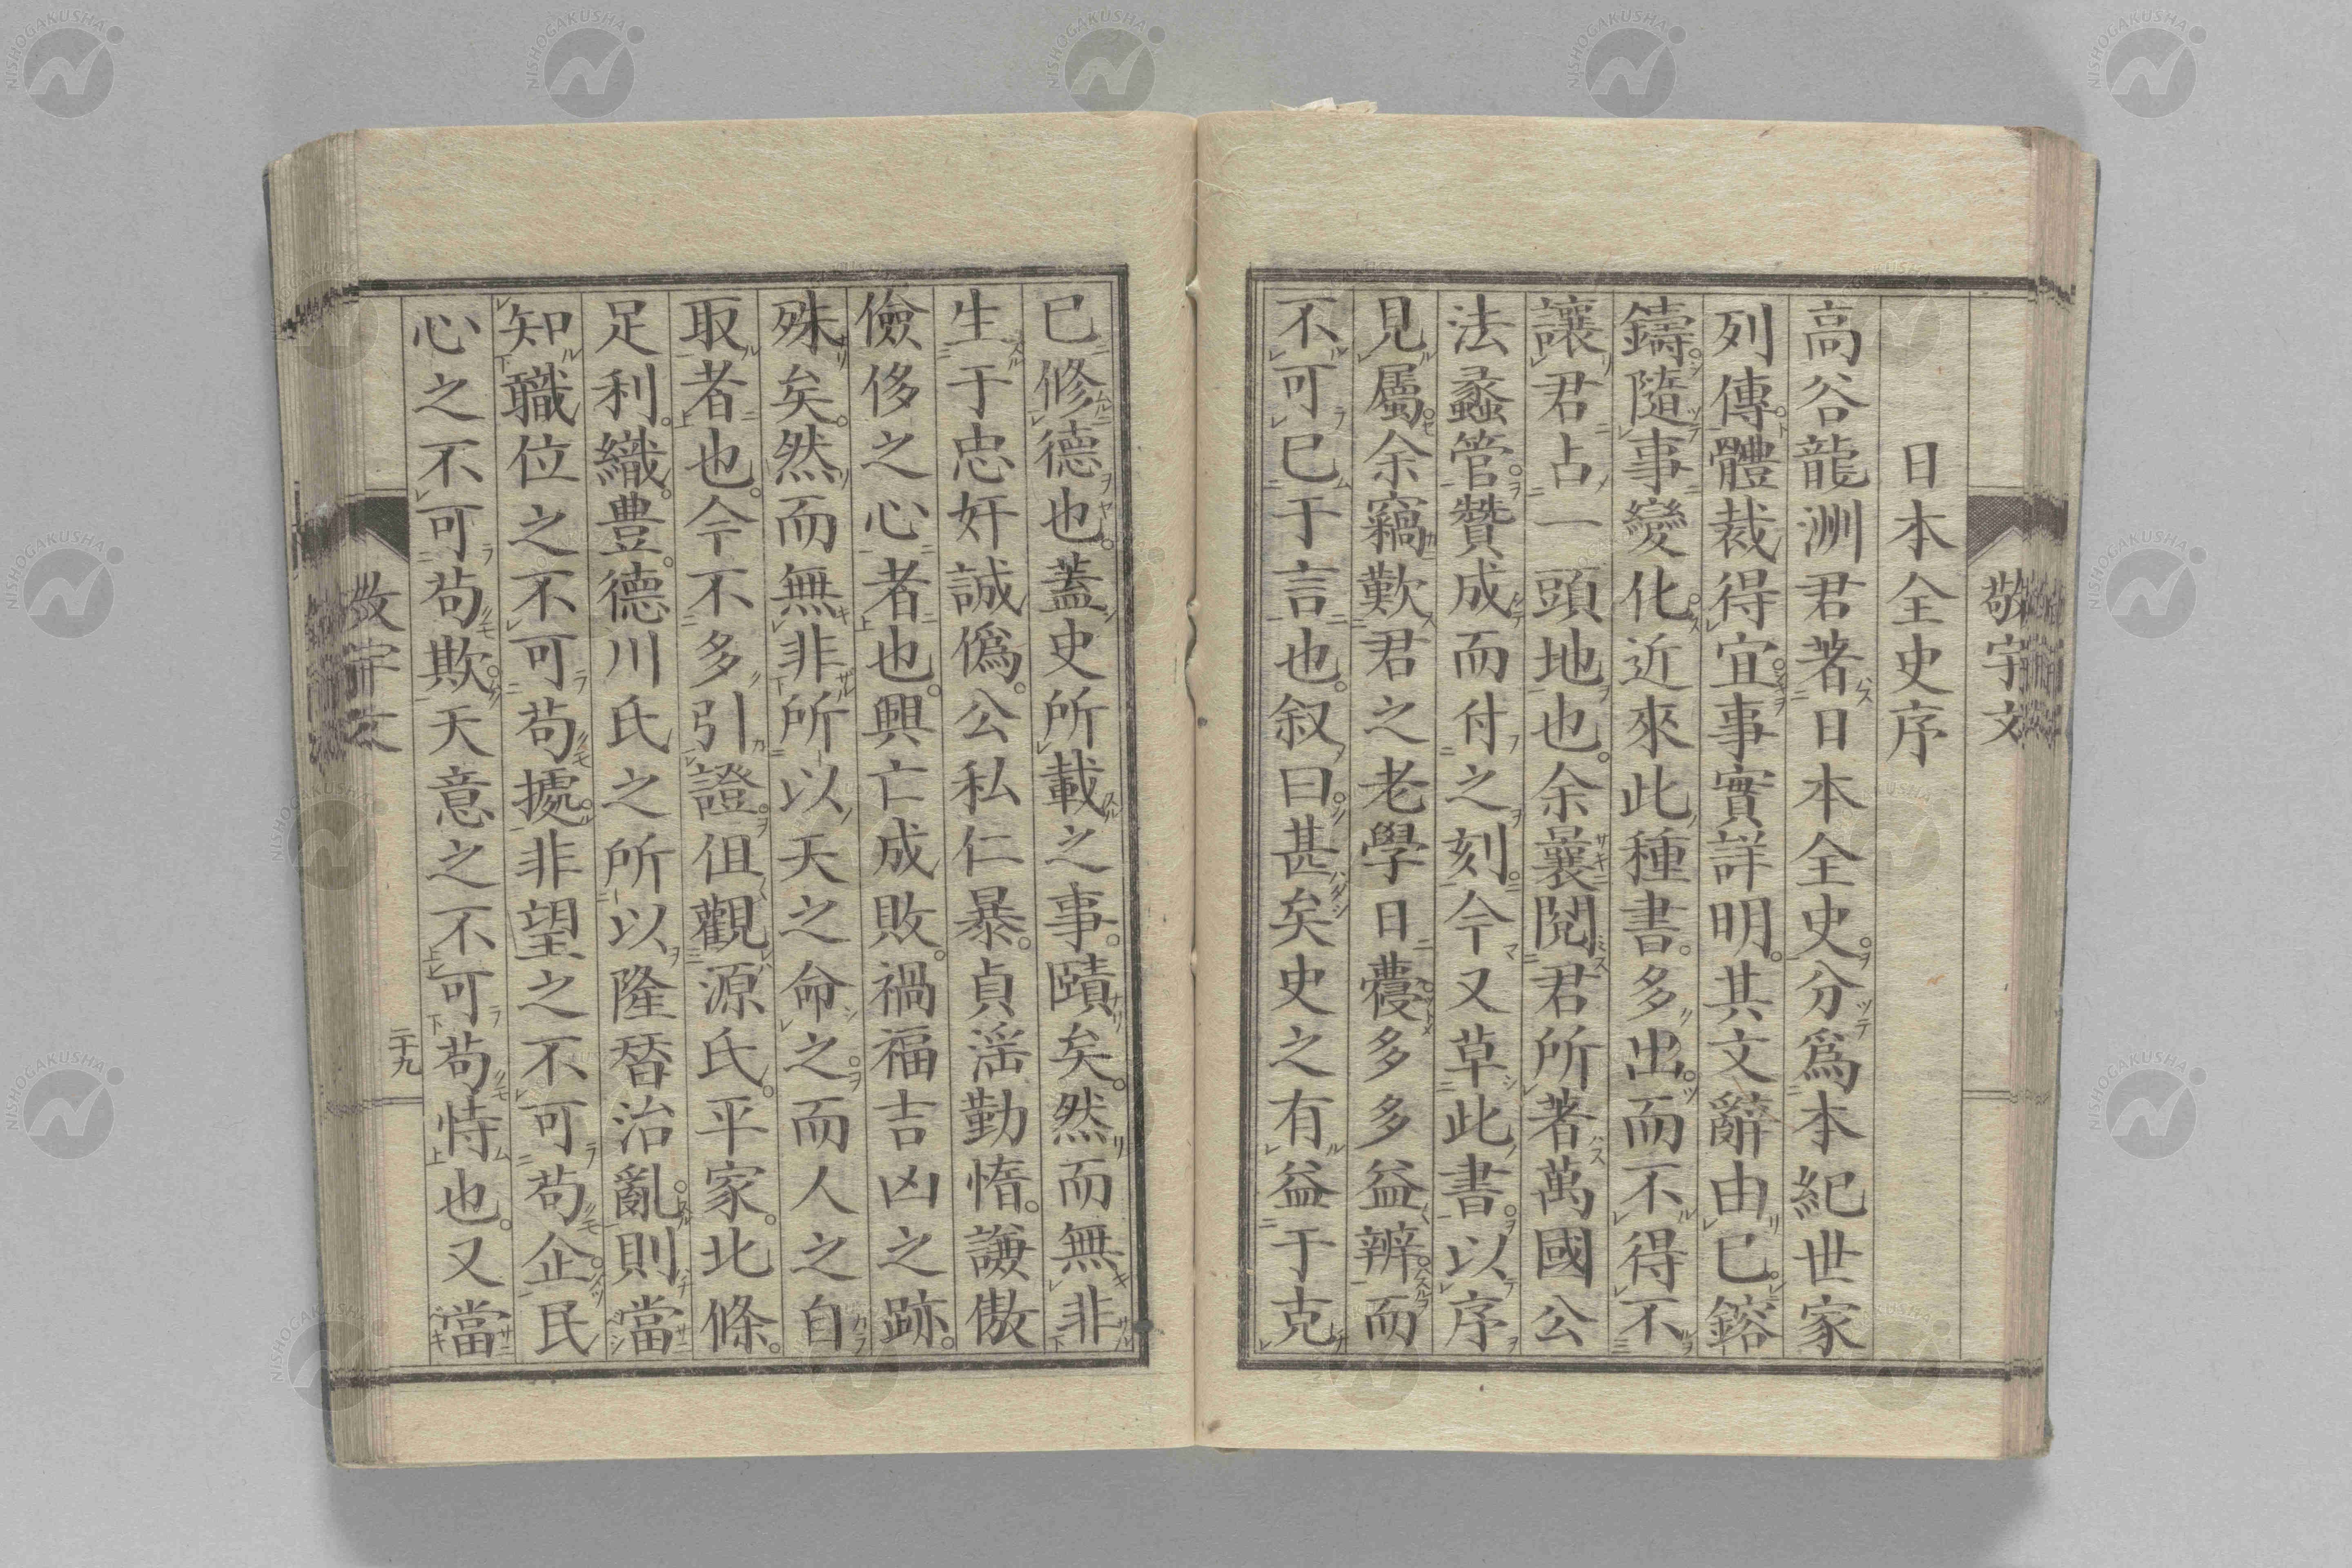 敬宇文
日本全史序
高谷龍洲君著日本全史。分爲本紀世家
列傳。體裁得宜。事實詳明。其文辭由已。鎔
鑄。隨事變化。近來此種書。多出。而不得不
讓君占一頭地也。余曩閱君所著萬國公
法蠡管。贊成而付之刻。今又草此書。以序
見屬。余竊歎君之老學日二多多益辨。而
不可已于言也。叙曰。甚矣史之有益于克
已修德也。蓋史所載之事。賾矣。然而無非
生于忠奸誠僞。公私仁暴。貞淫勤惰。謙傲
儉侈之心者也。興亡成敗。禍福吉凶之跡。
殊矣。然而無非所以天之命之。而人之自
取者也。今不多引證。但觀源氏。平家。北條。
足利。織豊。德川氏之所以隆替治亂。則當
知職位之不可苟據。非望之不可苟企。民
心之不可苟欺。天意之不可苟恃也。又當
敬宇文
二十九
NISHOGAKUSHA